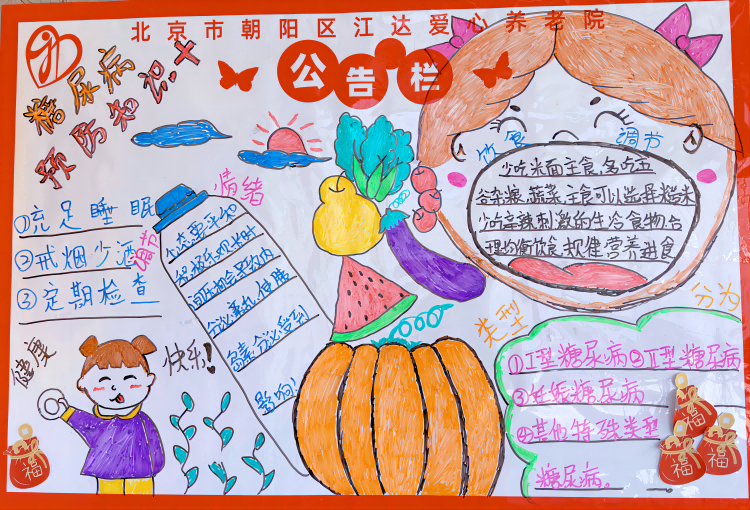 北京市朝阳区江达爱心养老院
公告栏
糖尿病
预防知识
①充足睡眠
②戒烟少酒
③定期检查
调节
情绪
心态要平和
焦虑都会导致
分泌紊乱,使胰
岛素分泌受到
影响!
饮食 调节
少吃米面主食,多吃五
谷杂粮、蔬菜,主食可以选择糙米
少吃辛辣刺激的生冷食物,合
理均衡饮食,规律营养进食
健康
快乐!
类型 分为
①Ⅰ型糖尿病②Ⅱ型糖尿病
③妊娠糖尿病
④其他特殊类型
糖尿病。
福
福
福
福